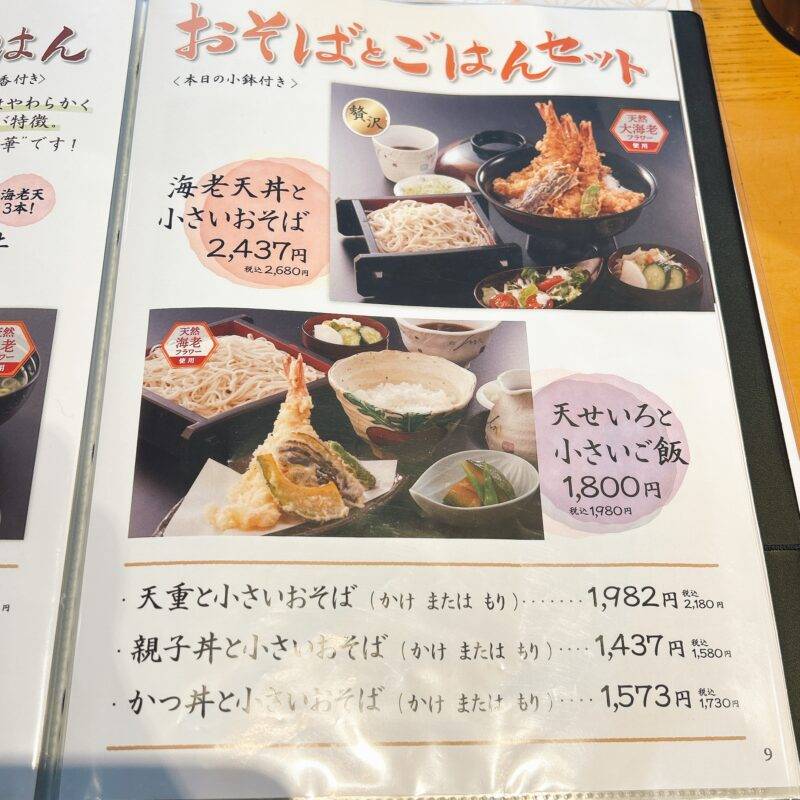 はん
香付き〉
はやわらかく
が特徴。
華"です！
海老天
3本！
天然
老
フラワー
使用
円
おそばとごはんセット
〈本日の小鉢付き〉
贅沢
天然
大海老
フラワー
使用
海老天丼と
小さいおそば
2,437円
税込2,680円
天然
海老
フラワー
使用
天せいろと
小さいご飯
1,800円
税込1,980円
・天重と小さいおそば（かけ または もり）‥‥‥‥1,982円 税込2,180円
・親子丼と小さいおそば（かけ または もり）‥‥1,437円 税込1,580円
・かつ丼と小さいおそば（かけ または もり）‥‥1,573円 税込1,730円
9